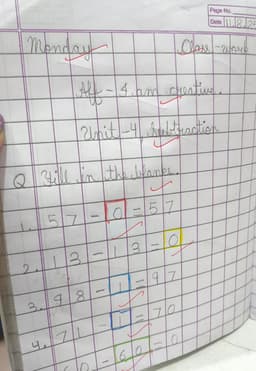 Page No.
Date 11/8/25
Monday Class - work
Aff - 4 am creative.
Unit - 4, Subtraction
Q Fill in the blanks.
1. 57 - 0 = 57
2. 13 - 13 = 0
3. 98 - 1 = 97
4. 71 - 1 = 70
60 - 60 = 0